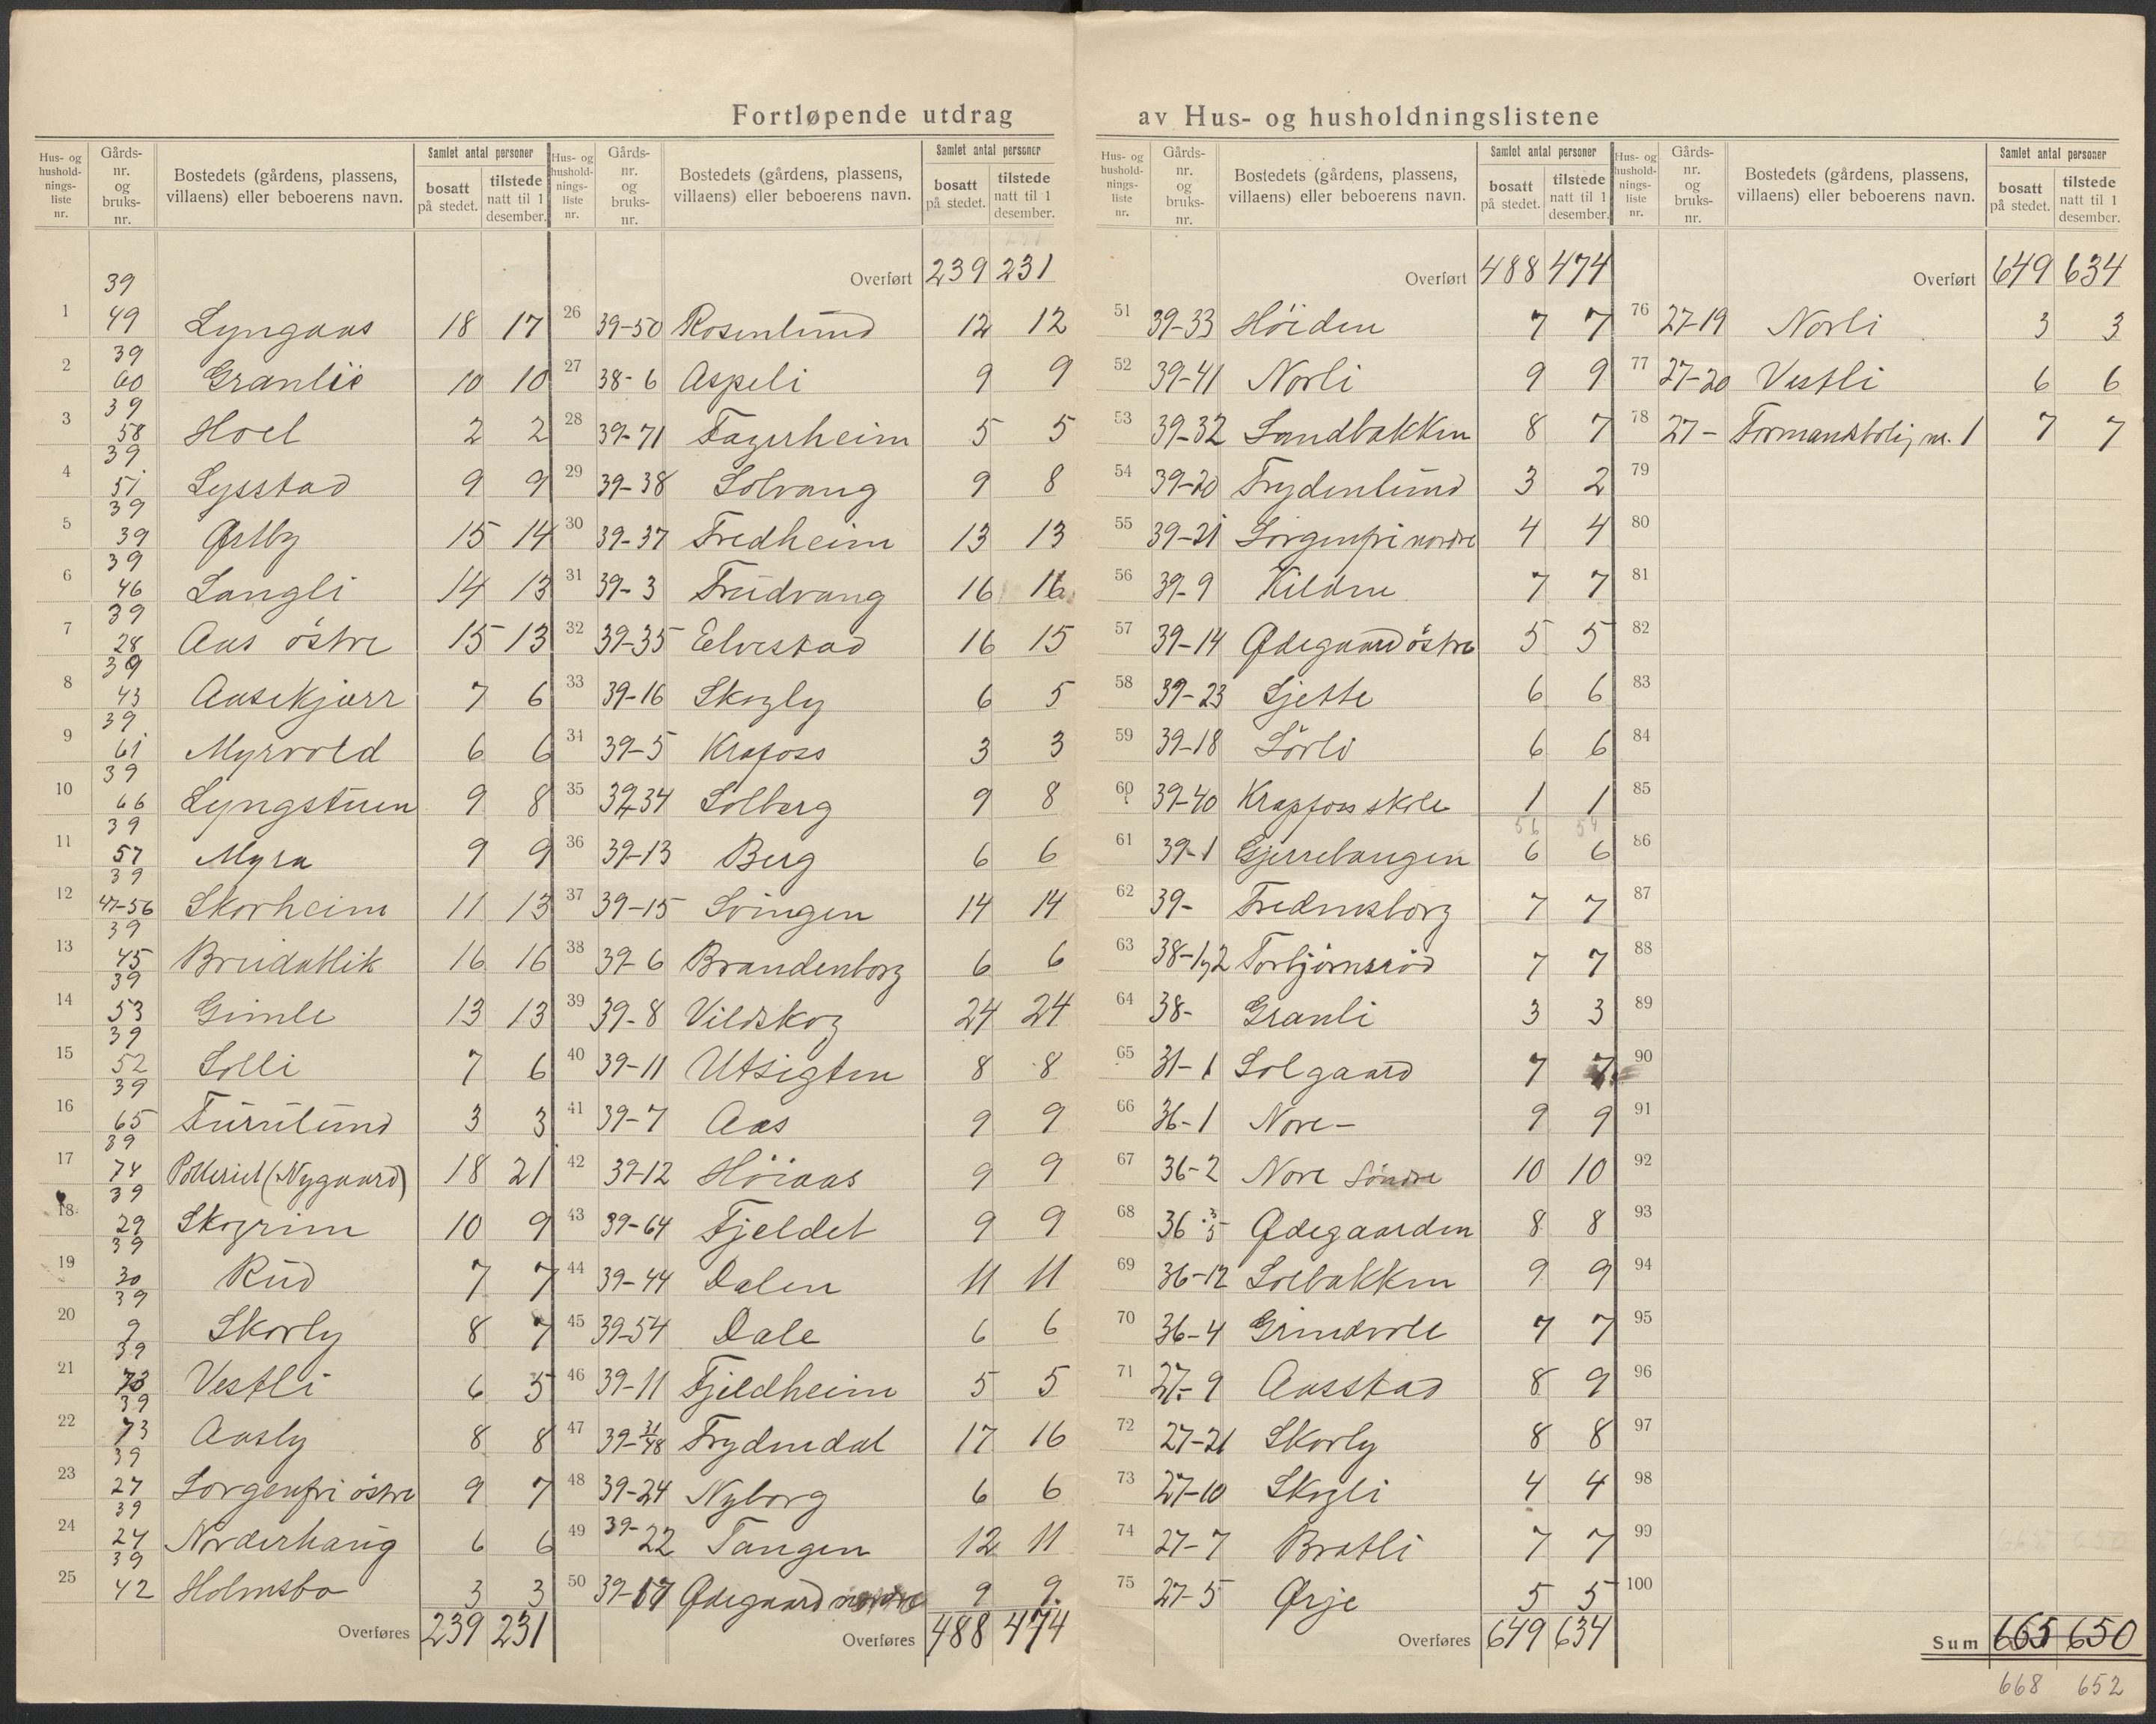 Fortløpende utdrag av Hus- og husholdningslistene
Hus- og husholdnings- liste nr. Gårds- nr. og bruks- nr. Bostedets (gårdens, plassens, villaens) eller beboerens navn. Samlet antal personer bosatt på stedet. tilstede natt til 1 desember.
1 39 49 Lyngaas 18 17
2 39 60 Granlie 10 10
3 39 58 Hoel 2 2
4 39 51 Lysstad 9 9
5 39 39 Østby 15 14
6 39 46 Langli 14 13
7 39 28 Aas östre 15 13
8 39 43 Aasekjær 7 6
9 39 61 Myrvold 6 6
10 39 66 Lyngstuen 9 8
11 39 57 Myra 9 9
12 39 47-56 Skovheim 11 13
13 39 45 Breidablik 16 16
14 39 53 Gimle 13 13
15 39 52 Solli 7 6
16 39 65 Furulund 3 3
17 39 74 Potteriet (Nygaard) 18 21
18 39 29 Skogrim 10 9
19 39 30 Rud 7 7
20 39 9 Skovly 8 7
21 39 73 Vestli 6 5
22 39 73 Aasly 8 8
23 39 27 Sorgenfri östre 9 7
24 39 24 Norderhaug 6 6
25 39 42 Holmsbo 3 3
Overføres 239 231
Hus- og husholdnings- liste nr. Gårds- nr. og bruks- nr. Bostedets (gårdens, plassens, villaens) eller beboerens navn. Samlet antal personer bosatt på stedet. tilstede natt til 1 desember.
Overført 239 231
26 39-50 Rosenlund 12 12
27 38-6 Aspeli 9 9
28 39-71 Fagerheim 5 5
29 39-38 Solvang 9 8
30 39-37 Fredheim 13 13
31 39-3 Trudvang 16 16
32 39-35 Elvestad 16 15
33 39-16 Skogly 6 5
34 39-5 Krafoss 3 3
35 39-34 Solberg 9 8
36 39-13 Berg 6 6
37 39-15 Svingen 14 14
38 39-6 Brandenborg 6 6
39 39-8 Vildskog 24 24
40 39-11 Utsigten 8 8
41 39-7 Aas 9 9
42 39-12 Höiaas 9 9
43 39-64 Fjeldet 9 9
44 39-44 Dalen 11 11
45 39-54 Dale 6 6
46 39-11 Fjeldheim 5 5
47 39-31/48 Frydendal 17 16
48 39-24 Nyborg 6 6
49 39-22 Tangen 12 11
50 39-17 Ødegaard nordre 9 9
Overføres 488 474
Hus- og husholdnings- liste nr. Gårds- nr. og bruks- nr. Bostedets (gårdens, plassens, villaens) eller beboerens navn. Samlet antal personer bosatt på stedet. tilstede natt til 1 desember.
Overført 488 474
51 39-33 Höiden 7 7
52 39-41 Norli 9 9
53 39-32 Sandbakken 8 7
54 39-20 Frydenlund 3 2
55 39-21 Sorgenfri nordre 4 4
56 39-9 Kilden 7 7
57 39-14 Ødegaard östre 5 5
58 39-23 Sjette 6 6
59 39-18 Sörli 6 6
60 39-40 Krapfoss skole 1 1
56 54
61 39-1 Gjerrebaugen 6 6
62 39- Fredensborg 7 7
63 38-1,2 Torbjörnsröd 7 7
64 38- Granli 3 3
65 31-1 Solgaard 7 7
66 36-1 Nore- 9 9
67 36-2 Nore Söndre 10 10
68 36-3/5 Ødegaarden 8 8
69 36-12 Solbakken 9 9
70 36-4 Grindvole 7 7
71 27-9 Aasstad 8 9
72 27-21 Skovly 8 8
73 27-10 Skogli 4 4
74 27-7 Bratli 7 7
75 27-5 Ørje 5 5
Overføres 649 634
Hus- og husholdnings- liste nr. Gårds- nr. og bruks- nr. Bostedets (gårdens, plassens, villaens) eller beboerens navn. Samlet antal personer bosatt på stedet. tilstede natt til 1 desember.
Overført 649 634
76 27-19 Norli 3 3
77 27-20 Vestli 6 6
78 27- Formandsbolig nr. 1 7 7
79
80
81
82
83
84
85
86
87
88
89
90
91
92
93
94
95
96
97
98
99
100
Sum 665 650
668 652